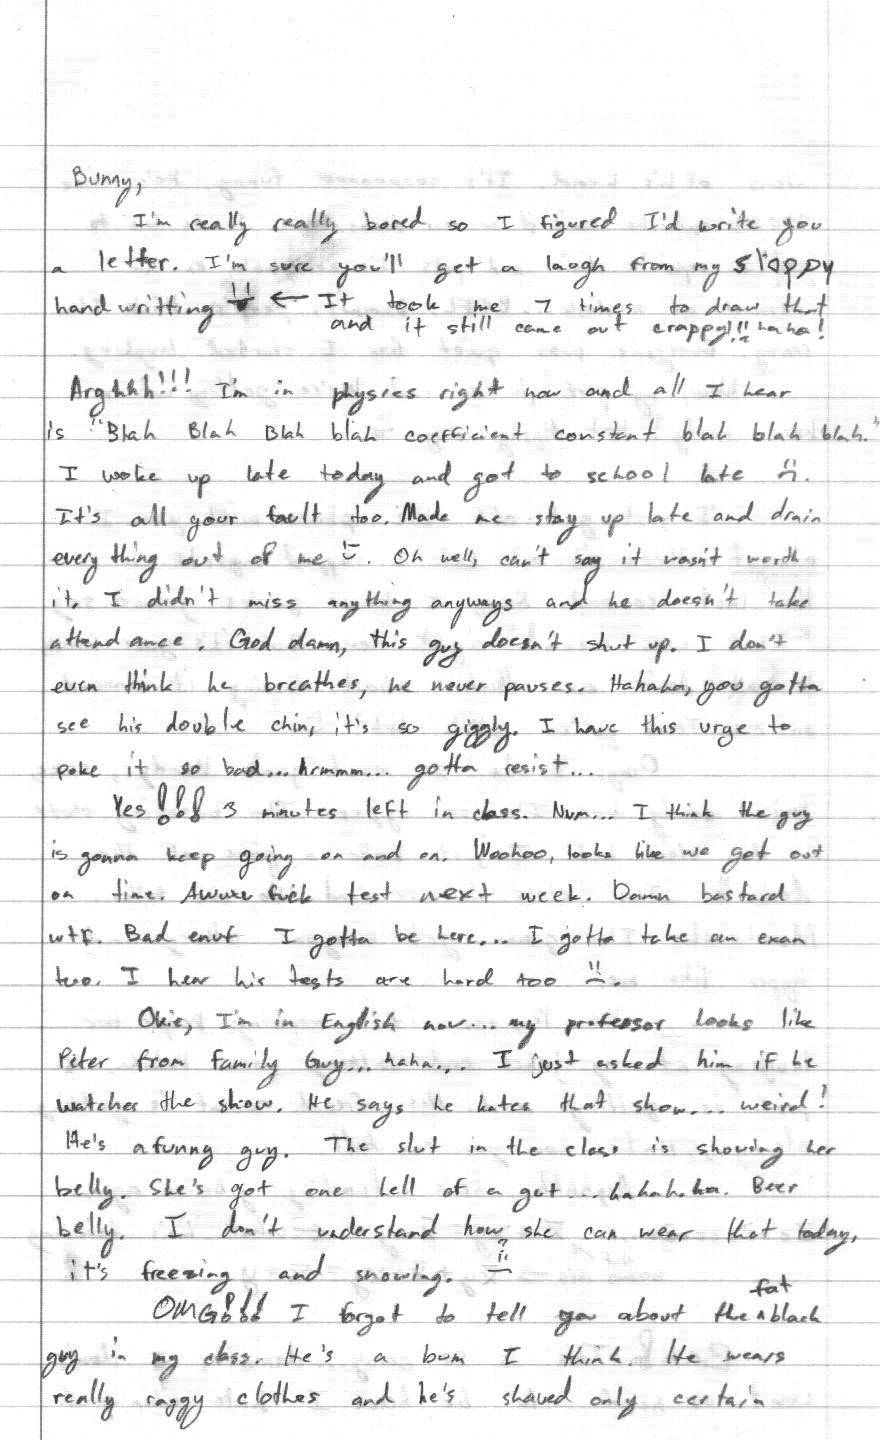 Bunny,
I'm really really bored so I figured I'd write you
a letter. I'm sure you'll get a laugh from my sloppy
handwritting ← It took me 7 times to draw that
and it still came out crappy!!! haha!
Arghhh!!! I'm in physics right now and all I hear
is "Blah Blah Blah blah coefficient constant blah blah blah."
I woke up late today and got to school late
It's all your fault too. Made me stay up late and drain
everything out of me. Oh well, can't say it wasn't worth
it. I didn't miss anything anyways and he doesn't take
attendance. God damn, this guy doesn't shut up. I don't
even think he breathes, he never pauses. Hahaha, you gotta
see his double chin, it's so giggly. I have this urge to
poke it so bad... hrmmm... gotta resist...
Yes!!! 3 minutes left in class. Num... I think the guy
is gonna keep going on and on. Woohoo, looks like we got out
on time. Awww fuck test next week. Damn bastard
wtf. Bad enuf I gotta be here... I gotta take an exam
too. I hear his tests are hard too
Okie, I'm in English now... my professor looks like
Peter from family Guy... haha... I just asked him if he
watches the show. He says he hates that show... weird!
He's a funny guy. The slut in the class is showing her
belly. She's got one hell of a gut... hahahaha. Beer
belly. I don't understand how she can wear that today,
it's freezing and snowing.
OMG!!! I forgot to tell you about the fat black
guy in my class. He's a bum I think. He wears
really raggy clothes and he's shaved only certain